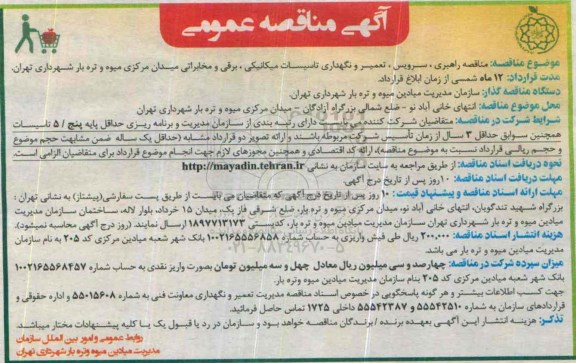 آگهی مناقصه عمومی
موضوع مناقصه: مناقصه راهبری ، سرویس ، تعمیر و نگهداری تاسیسات میکانیکی ، برقی و مخابراتی میدان مرکزی میوه و تره بار شهرداری تهران.
مدت قرارداد: ۱۲ ماه شمسی از زمان ابلاغ قرارداد.
دستگاه مناقصه گذار: سازمان مدیریت میادین میوه و تره بار شهرداری تهران.
محل موضوع مناقصه: انتهای خانی آباد نو - ضلع شمالی بزرگراه آزادگان – میدان مرکزی میوه و تره بار شهرداری تهران
شرایط شرکت در مناقصه: متقاضیان شرکت کننده می بایست دارای رتبه بندی از سازمان مدیریت و برنامه ریزی حداقل پایه پنج / ۵ تاسیسات
همچنین سوابق حداقل ۳ سال از زمان تأسیس شرکت مربوطه باشند و ارائه تصویر دو قرارداد مشابه (حداقل یک ساله ضمن مشابهت حجم موضوع
و حجم ریالی قرارداد نسبت به موضوع مناقصه)، ارائه کد اقتصادی و همچنین مجوزهای لازم جهت انجام موضوع قرارداد برای متقاضیان الزامی است.
نحوه دریافت اسناد مناقصه: از طریق مراجعه به سایت سازمان به نشانی http://mayadin.tehran.ir
مهلت دریافت اسناد مناقصه: ۱۰ روز پس از تاریخ درج آگهی.
مهلت ارائه اسناد مناقصه و پیشنهاد قیمت: ۱۰ روز پس از تاریخ درج آگهی که متقاضیان می بایست از طریق پست سفارشی(پیشتاز) به نشانی تهران :
بزرگراه شهید تندگویان، انتهای خانی آباد نو، میدان مرکزی میوه و تره بار، ضلع شرقی فاز یک، میدان ۱۵ خرداد، بلوار لاله، ساختمان سازمان مدیریت
میادین میوه و تره بار شهرداری تهران سازمان مدیریت میادین میوه و تره بار، کدپستی ۱۸۹۷۷۱۳۱۷۳ ارسال نمایند. (روز درج آگهی محاسبه نمیشود).
هزینه انتشار اسناد مناقصه: ۲۰۰،۰۰۰ ریال طی فیش واریزی به حساب شماره ۱۰۰۲۱۶۵۵۵۶۸۵۸ بانک شهر شعبه میادین مرکزی کد ۲۰۵ به نام سازمان
مدیریت میادین میوه و تره بار می باشد.
میزان سپرده شرکت در مناقصه: چهارصد و سی میلیون ریال معادل چهل و سه میلیون تومان بصورت واریز نقدی به حساب شماره ۱۰۰۲۱۶۵۵۶۸۴۵۷
بانک شهر شعبه میادین مرکزی کد ۲۰۵ بنام سازمان مدیریت میادین میوه وتره بار.
جهت کسب اطلاعات بیشتر و هر گونه پاسخگویی درخصوص اسناد مناقصه مدیریت تعمیر و نگهداری معاونت فنی به شماره ۵۵۰۱۵۶۰۸ و اداره حقوقی و
قراردادهای سازمان به شماره ۵۵۵۴۲۵۱۰ و ۵۵۵۴۲۳۸۷ داخلی ۱۷۲۵ تماس حاصل فرمائید.
تذکر: هزینه انتشار ایـن آگهـی بعهـده برنده / برندگان مناقصه خواهد بود و سازمان در رد یا قبول یک یا کلیه پیشنهادات مختار میباشد.
روابط عمومی و امور بین الملل سازمان
مدیریت میادین میوه وتره بار شهرداری تهران